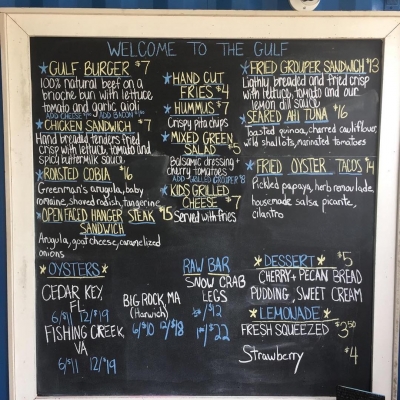 WELCOME TO THE GULF
*GULF BURGER $7
100% natural beef on a
brioche bun with lettuce
tomato and garlic aioli
ADD CHEESE $1.00 ADD BACON $1.00
*CHICKEN SANDWICH $7
Hand breaded tenders fried
crisp with lettuce, tomato and
spicy buttermilk sauce
*ROASTED COBIA $16
Greenman's arugula, baby
romaine, shaved radish, tangerine
*OPEN FACED HANGER STEAK $15
SANDWICH
Arugula, goat cheese, caramelized
onions
*HAND CUT
FRIES $4
*HUMMUS $7
Crispy pita chips
*MIXED GREEN
SALAD $5
Balsamic dressing +
cherry tomatoes
ADD GRILLED GROUPER $8
*KIDS GRILLED
CHEESE $7
Served with fries
*FRIED GROUPER SANDWICH $13
Lightly breaded and fried crisp
with lettuce, tomato and our
lemon dill sauce
*SEARED AHI TUNA $16
Toasted quinoa, charred cauliflower,
wild shallots, marinated tomatoes
*FRIED OYSTER TACOS $14
Pickled papaya, herb remoulade,
housemade salsa picante,
cilantro
*OYSTERS*
CEDAR KEY,
FL
6/$11 12/$19
FISHING CREEK,
VA
6/$11 12/$19
BIG ROCK, MA
(Harwich)
6/$10 12/$18
RAW BAR
SNOW CRAB
LEGS
/$12
/$22
*DESSERT* $5
CHERRY + PECAN BREAD
PUDDING, SWEET CREAM
*LEMONADE*
FRESH SQUEEZED $3.50
Strawberry $4